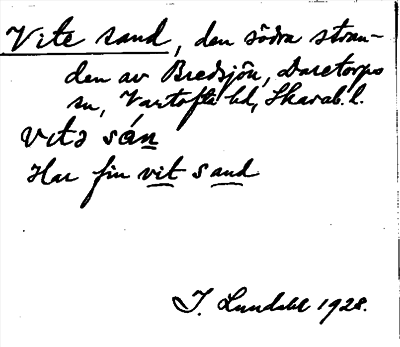 Vite sand, den södra stran-
den av Bredsjön, Daretorps
sn, Vartofta hd, Skarab. l.
vitə sán
Har fin vit sand
I. Lundahl 1928.